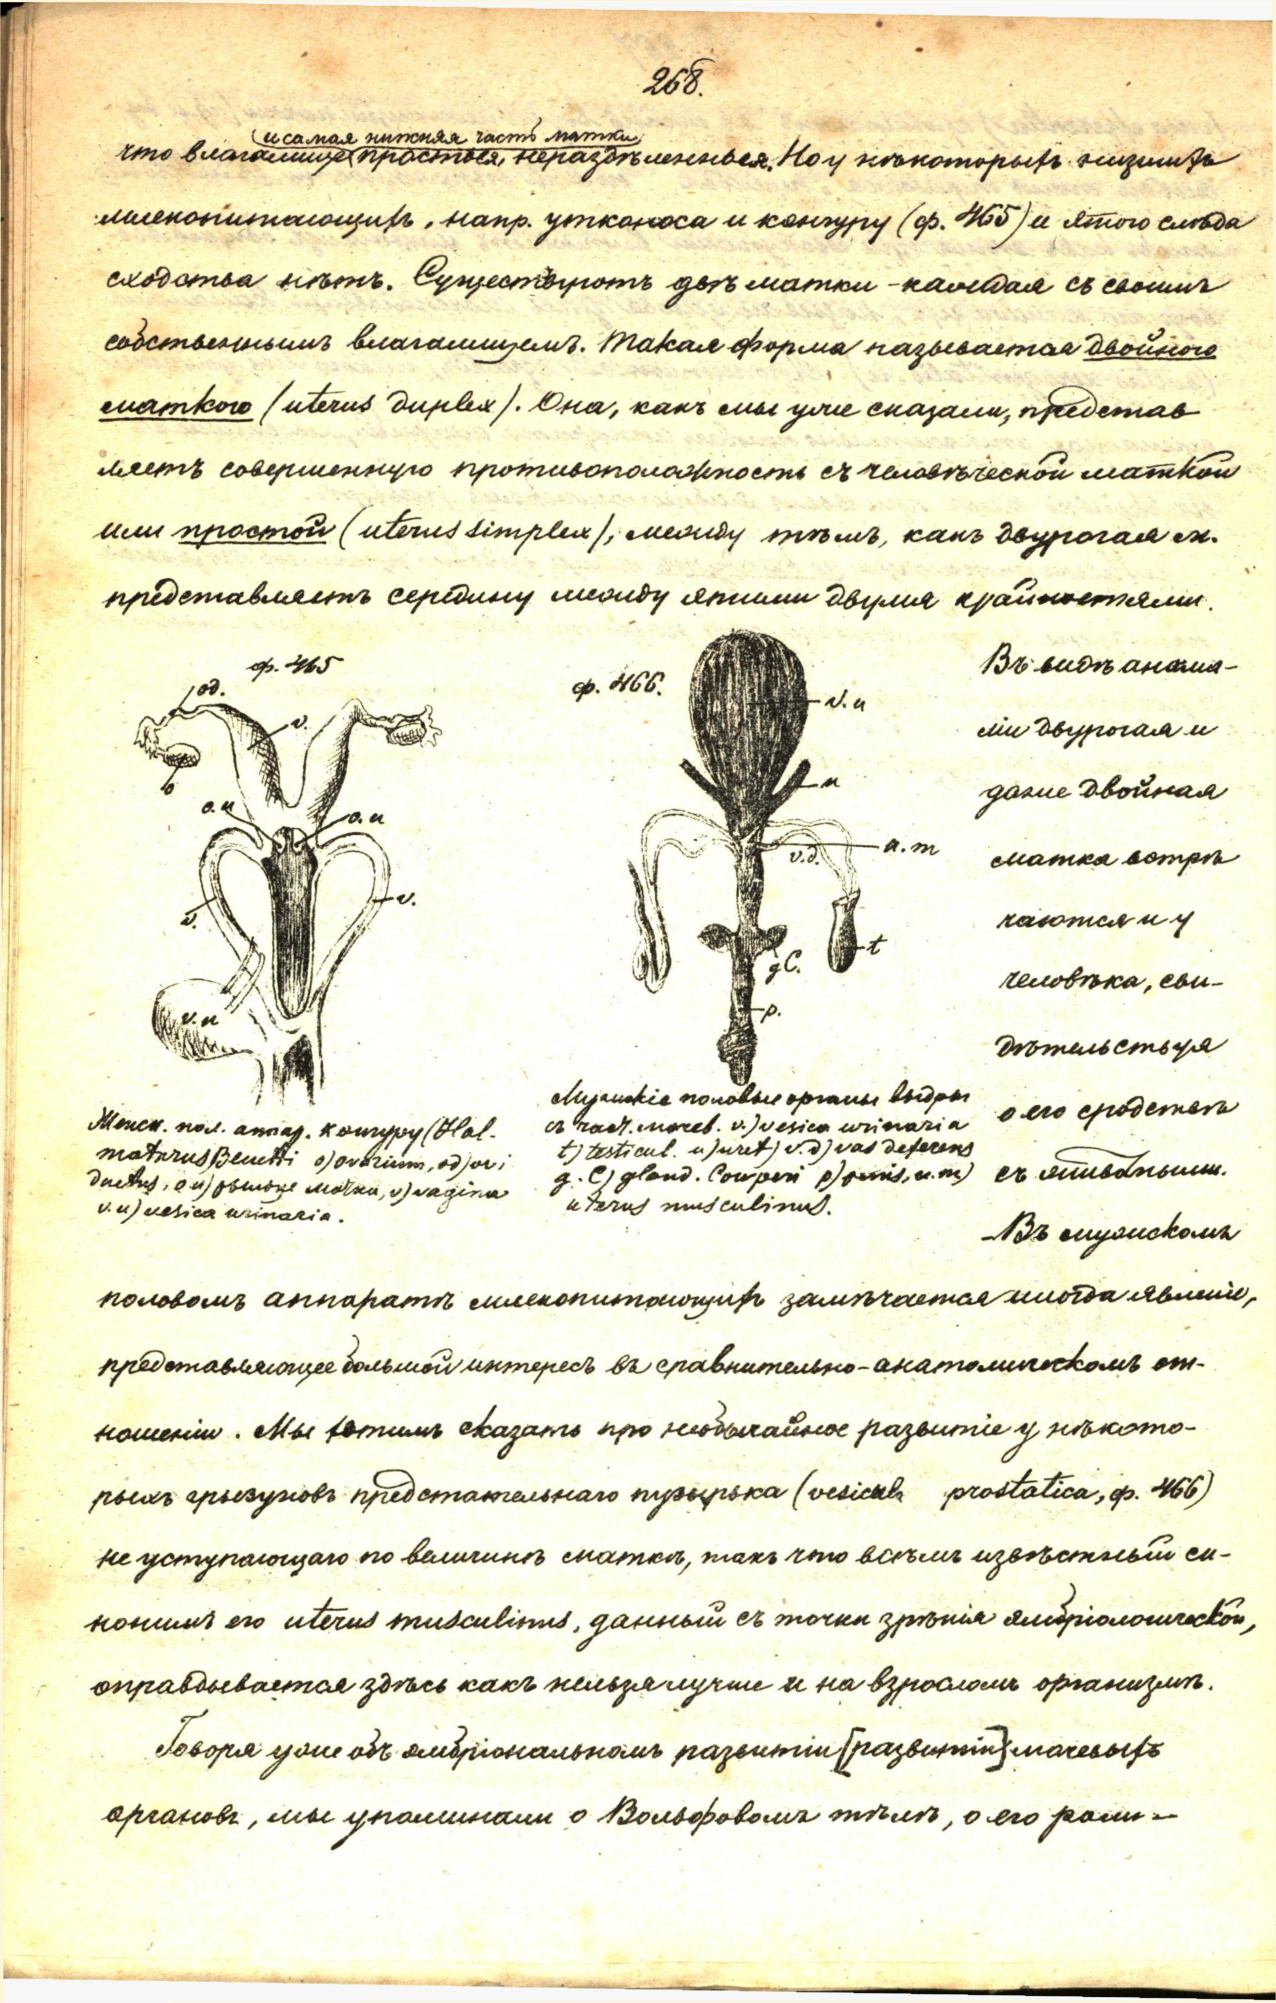 268.
(и самая нижняя часть матки)
что влагалище простыя, нераздѣленныя. Но у нѣкоторыхъ низшихъ
млекопитающихъ, напр. утконоса и кенгуру (ф. 465) и этого слѣда
сходства нѣтъ. Существуютъ двѣ матки - каждая съ своимъ
собственнымъ влагалищемъ. Такая форма называется двойною
маткою (uterus duplex). Она, какъ мы уже сказали, представ
ляетъ совершенную противоположность съ человѣческой маткой
или простой (uterus simplex), между тѣмъ, какъ двурогая м.
представляетъ середину между этими двумя крайностями.
ф. 465
od.
v.
o
o.u
o.u
v.
v.
v.u
ф. 466.
v.u
u
u.m
v.d.
t
g C.
p.
Въ видѣ анома-
ліи двурогая и
даже двойная
матка встрѣ
чаются и у
человѣка, сви-
дѣтельствуя
о его сродствѣ
съ животными.
Женск. пол. аппар. кенгуру (Hal-
maturus Benetti o) ovarium, od) ovi
ductus, o u) рыльце матки, v) vagina
v. u) vesica urinaria.
Мужскіе половые органы выдры
съ част. мочев. v.) vesica urinaria
t) testicul. u) uret) v. d) vas deferens
g. C) gland. Cowperi p) penis, u. m)
uterus musculinus.
-Въ мужскомъ
половомъ аппаратѣ млекопитающихъ замѣчается иногда явленіе,
представляющее большой интересъ въ сравнительно-анатомическомъ от-
ношеніи. Мы хотимъ сказать про необычайное развитіе у нѣкото-
рыхъ грызуновъ предстательнаго пузырька (vesicula prostatica, ф. 466)
не уступающаго по величинѣ маткѣ, такъ что всѣмъ извѣстный си-
нонимъ его uterus musculinus, данный съ точки зрѣнія эмбріологической,
оправдывается здѣсь какъ нельзя лучше и на взросломъ организмѣ.
Говоря уже объ эмбріональномъ развитіи [развитіи] мочевыхъ
органовъ, мы упоминали о Вольфовомъ тѣлѣ, о его роли -